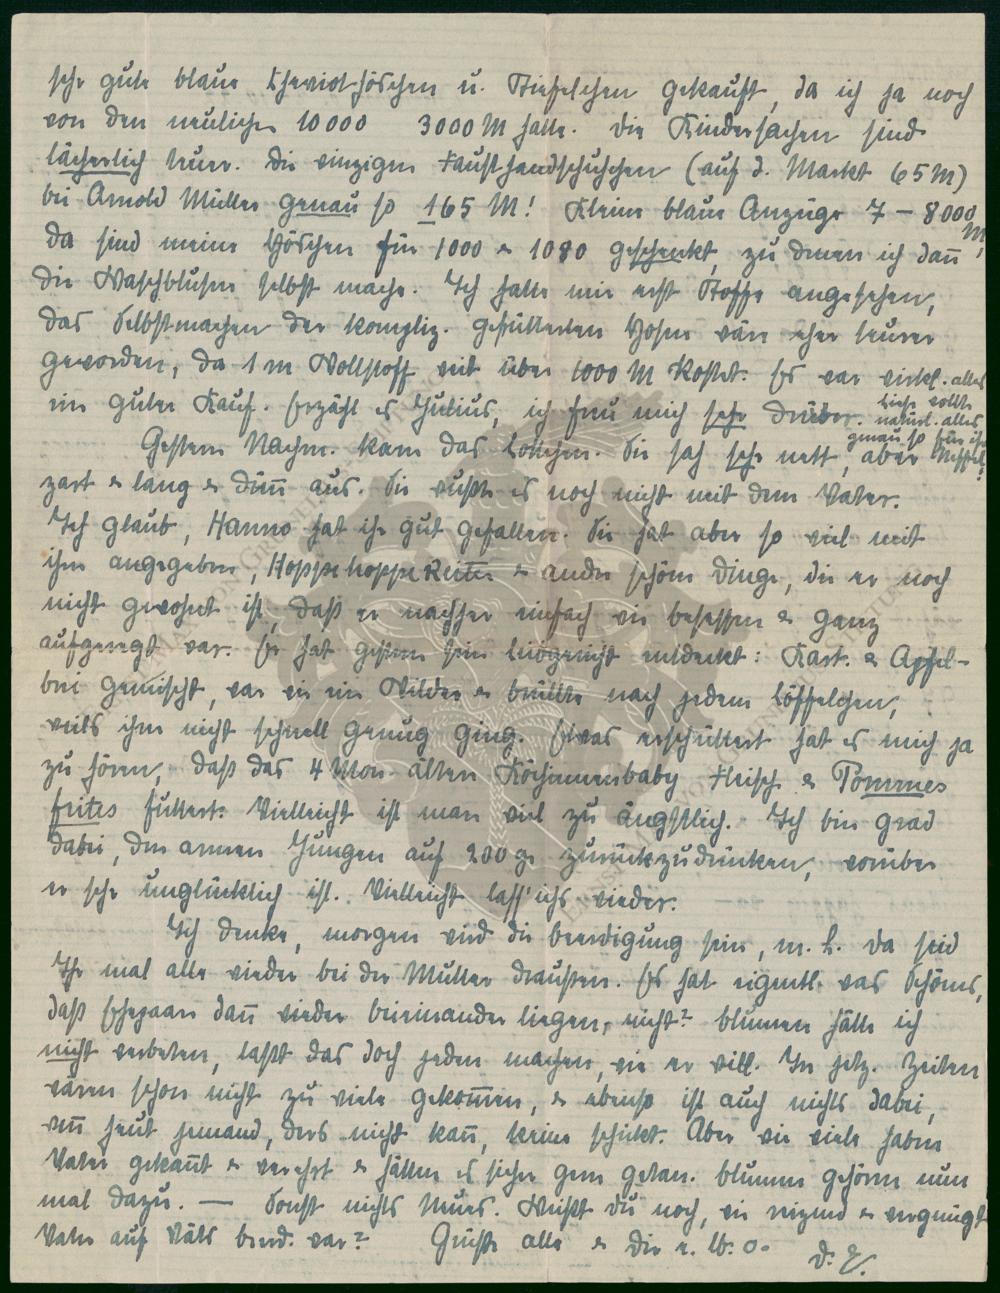 sehr gute blaue Cheviothöschen u. Stiefelchen gekauft, da ich ja noch
von den neulichen 10000 3000 M hatte. Die Kindersachen sind
lächerlich teuer. Die winzigen Fausthandschuhchen (auf d. Markt 65 M)
bei Arnold Müller genau so 165 M! Kleine blaue Anzüge 7 – 8000 M,
da sind meine Höschen für 1000 & 1080 geschenkt, zu denen ich dañ
die Waschblusen selbst mache. Ich hatte mir erst Stoffe angesehen,
das Selbstmachen der kompliz. gefütterten Hosen wäre eher teurer
geworden, da 1 m Wollstoff weit über 1000 M kostet. Es war wirkl. alles
ein guter Kauf. Erzähl es Julius, ich freu mich sehr drüber.
Liese wollte
naturl. alles
genau so für ihr
Gestern Nachm. kam das Lottchen. Sie sah sehr nett, aber
zart & lang & düñ aus. Sie wußte es noch nicht mit dem Vater.
Ich glaub, Hanno hat ihr gut gefallen. Sie hat aber so viel mit
ihm angegeben, Hoppehoppe Reiter & andre schöne Dinge, die er noch
nicht gewohnt ist, daß er nachher einfach wie besessen & ganz
aufgeregt war. Er hat gestern sein Leibgericht entdeckt: Kart. & Apfel-
brei gemischt, war wie ein Wilder & brüllte nach jedem Löffelchen,
weils ihm nicht schnell genug ging. Etwas erschüttert hat es mich ja
zu hören, daß das 4 Mon. alten Köchinnenbaby Fleisch & Pommes
frites futtert. Vielleicht ist man viel zu ängstlich. Ich bin grad
dabei, den armen Jungen auf 200 gr zurückzudrücken, worüber
er sehr unglücklich ist. Vielleicht lass' ichs wieder.
Ich denke, morgen wird die Beerdigung sein, m. L. Da seid
Ihr mal alle wieder bei der Mutter draußen. Es hat eigentl. was Schönes,
daß Ehepaare dañ wieder beieinander liegen, nicht? Blumen hätte ich
nicht verbeten, laßt das doch jeden machen, wie er will. In jetz. Zeiten
wären schon nicht zu viele gekom̃en, & ebenso ist auch nichts dabei,
weñ heut jemand, ders nicht kañ, keine schickt. Aber wie viele haben
Vater gekañt & verehrt & hätten es sicher gern getan. Blumen gehören nun
mal dazu. — Sonst nichts Neues. Weißt du noch, wie reizend & vergnügt
Vater auf Wäls Beerd. war? Grüße alle & Dir e. lb. o.
D. E.